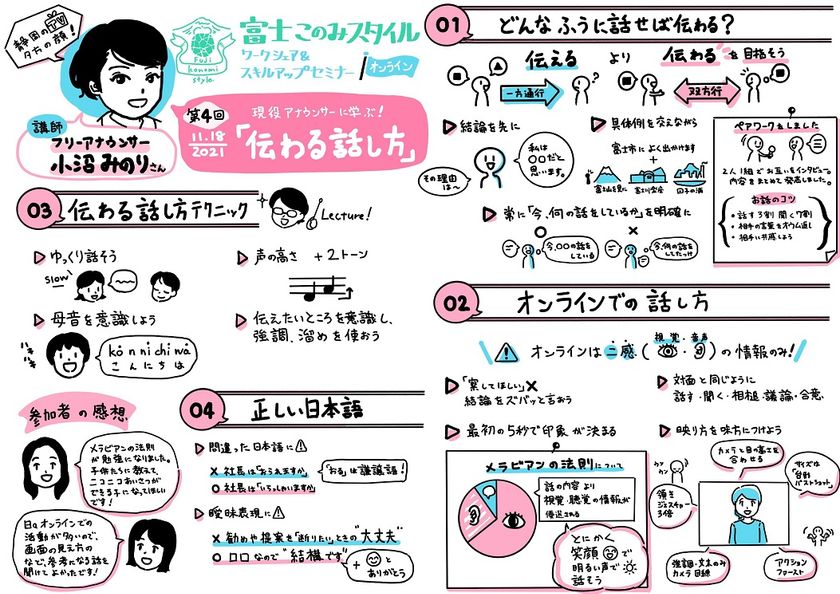 静岡のTV
夕方の顔!
講師
フリーアナウンサー
小沼みのりさん
Fuji
konomi
style
富士このみスタイル
ワークシェア&
スキルアップセミナー in オンライン
第4回
11.18
2021
現役アナウンサーに学ぶ!
「伝わる話し方」
01 どんなふうに話せば伝わる?
伝える より 伝わる を目指そう
一方通行
双方行
結論を先に
その理由は〜
私は
〇〇だと
思います。
具体例を交えながら
富士市によく出かけます
+
富士山を見に
田子の浦
常に「今、何の話をしているか」を明確に
今、〇〇の話を
している
×
今、何の話を
してたっけ
ペアワークをしました
2人1組でお互いをインタビュー。
内容をまとめて発表しました。
お話のコツ
・話す3割 聞く7割
・相手の言葉をオウム返し
・相手に共感しよう
02 オンラインでの話し方
オンラインは二感(視覚・音声)の情報のみ!
「察してほしい」×
結論をズバッと言おう
対面と同じように
話す・聞く・相槌・議論・合意
最初の5秒で印象が決まる
メラビアンの法則について
話の内容より
視覚・聴覚の情報が
優先される
とにかく
笑顔で
明るい声で
話そう
映り方を味方につけよう
カメラと目の高さを
合わせる
サイズは
「台形
バストショット」
頷き
ジェスチャー
3倍
強調・文末のみ
カメラ目線
アクション
ファースト
03 伝わる話し方テクニック
Lecture!
ゆっくり話そう
slow
声の高さ +2トーン
母音を意識しよう
ハキ
ハキ
kó n ni chi wá
こ ん に ち は
伝えたいところを意識し、
強調、溜めを使おう
04 正しい日本語
間違った日本語に
× 社長は「おられますか」
〇 社長は「いらっしゃいますか」
「おる」は謙譲語!
曖昧表現に
× 勧めや提案を「断りたい」ときの"大丈夫"
〇 □□なので"結構です"
+
ありがとう
参加者の感想
メラビアンの法則
が勉強になりました。
子供たちに教えて、
ニコニコあいさつが
できる子になってほしい
です!
日々オンラインでの
活動が多いので、
画面の見え方の
など、参考になる話を
聞けてよかったです!